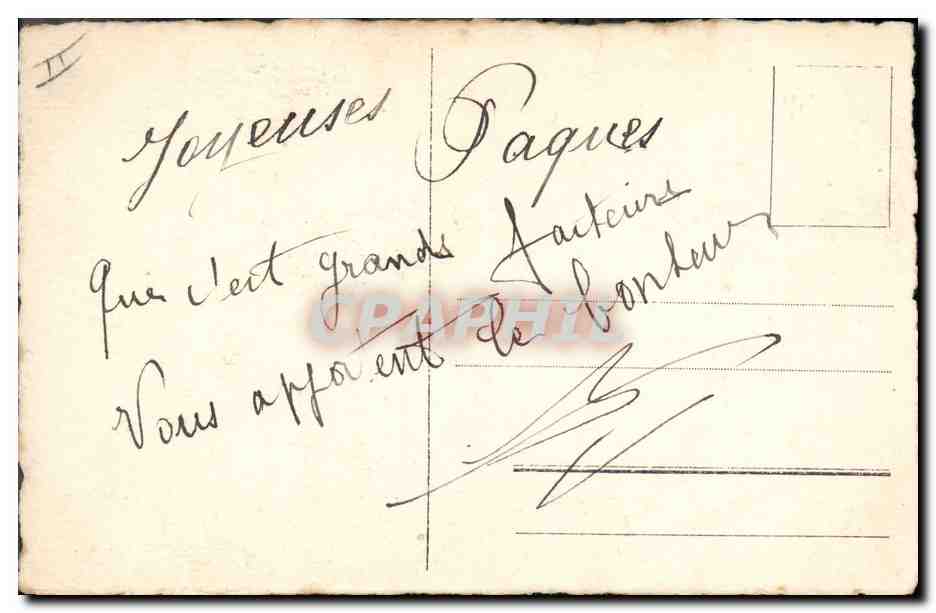 II
Joyeuses Paques
Que c'est grands facteurs
Vous apportent le bonheur
CPAPHIL